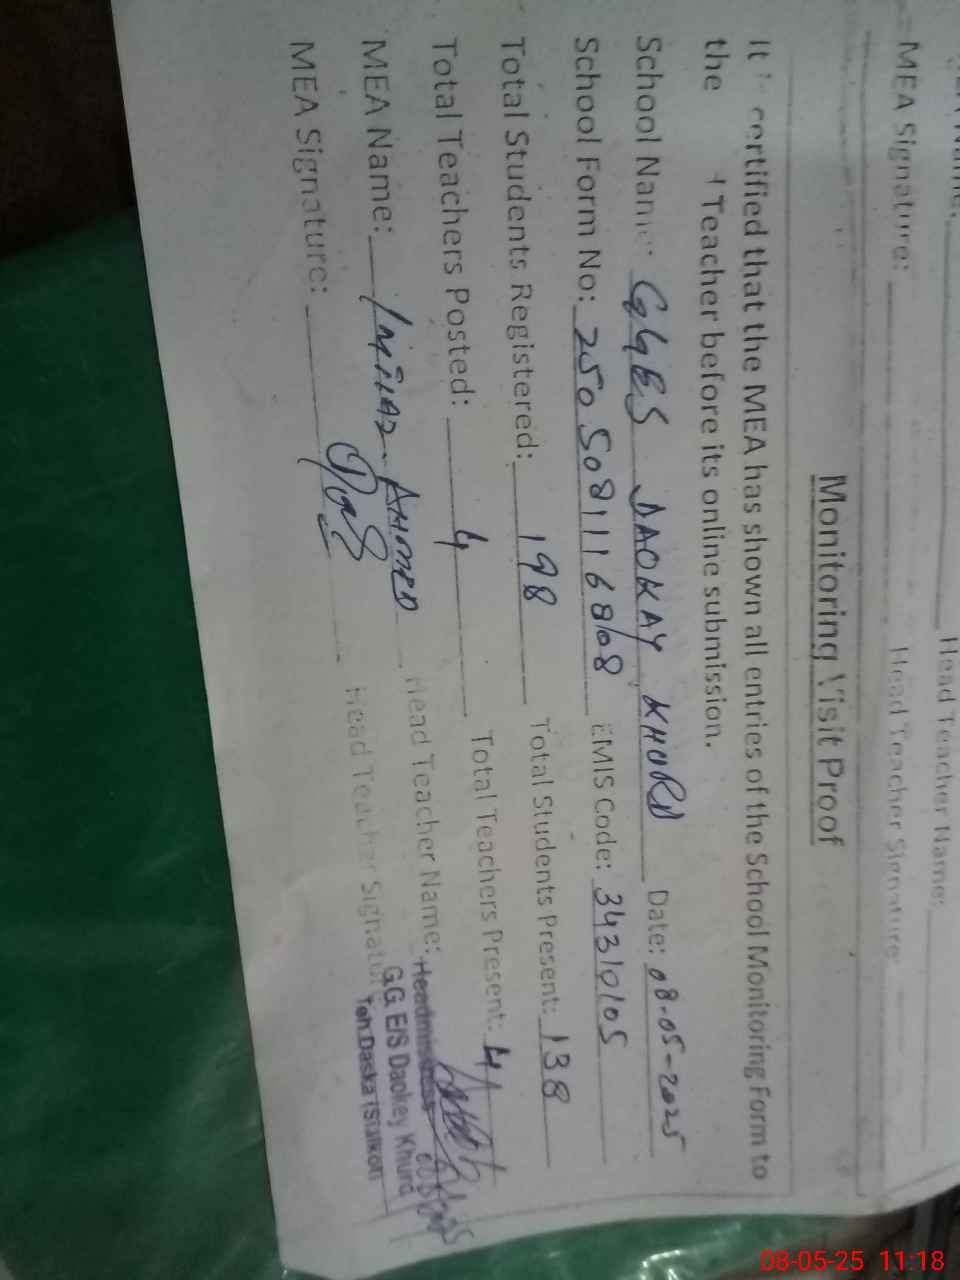 MEA Signature: Head Teacher Signature:
Head Teacher Name:
Monitoring Visit Proof
It certified that the MEA has shown all entries of the School Monitoring Form to
the Teacher before its online submission.
School Name: GGES DAOKAY KHURD Date: 08-05-2025
School Form No: 25050811168108 EMIS Code: 34310105
Total Students Registered: 198 Total Students Present: 138
Total Teachers Posted: 4 Total Teachers Present: 4
MEA Name: AHMED Head Teacher Name:
MEA Signature: Head Teacher Signatur
Headmistress
G.G E/S Daokey Khurd
Teh.Daska (Sialkot)
08-05-25 11:18